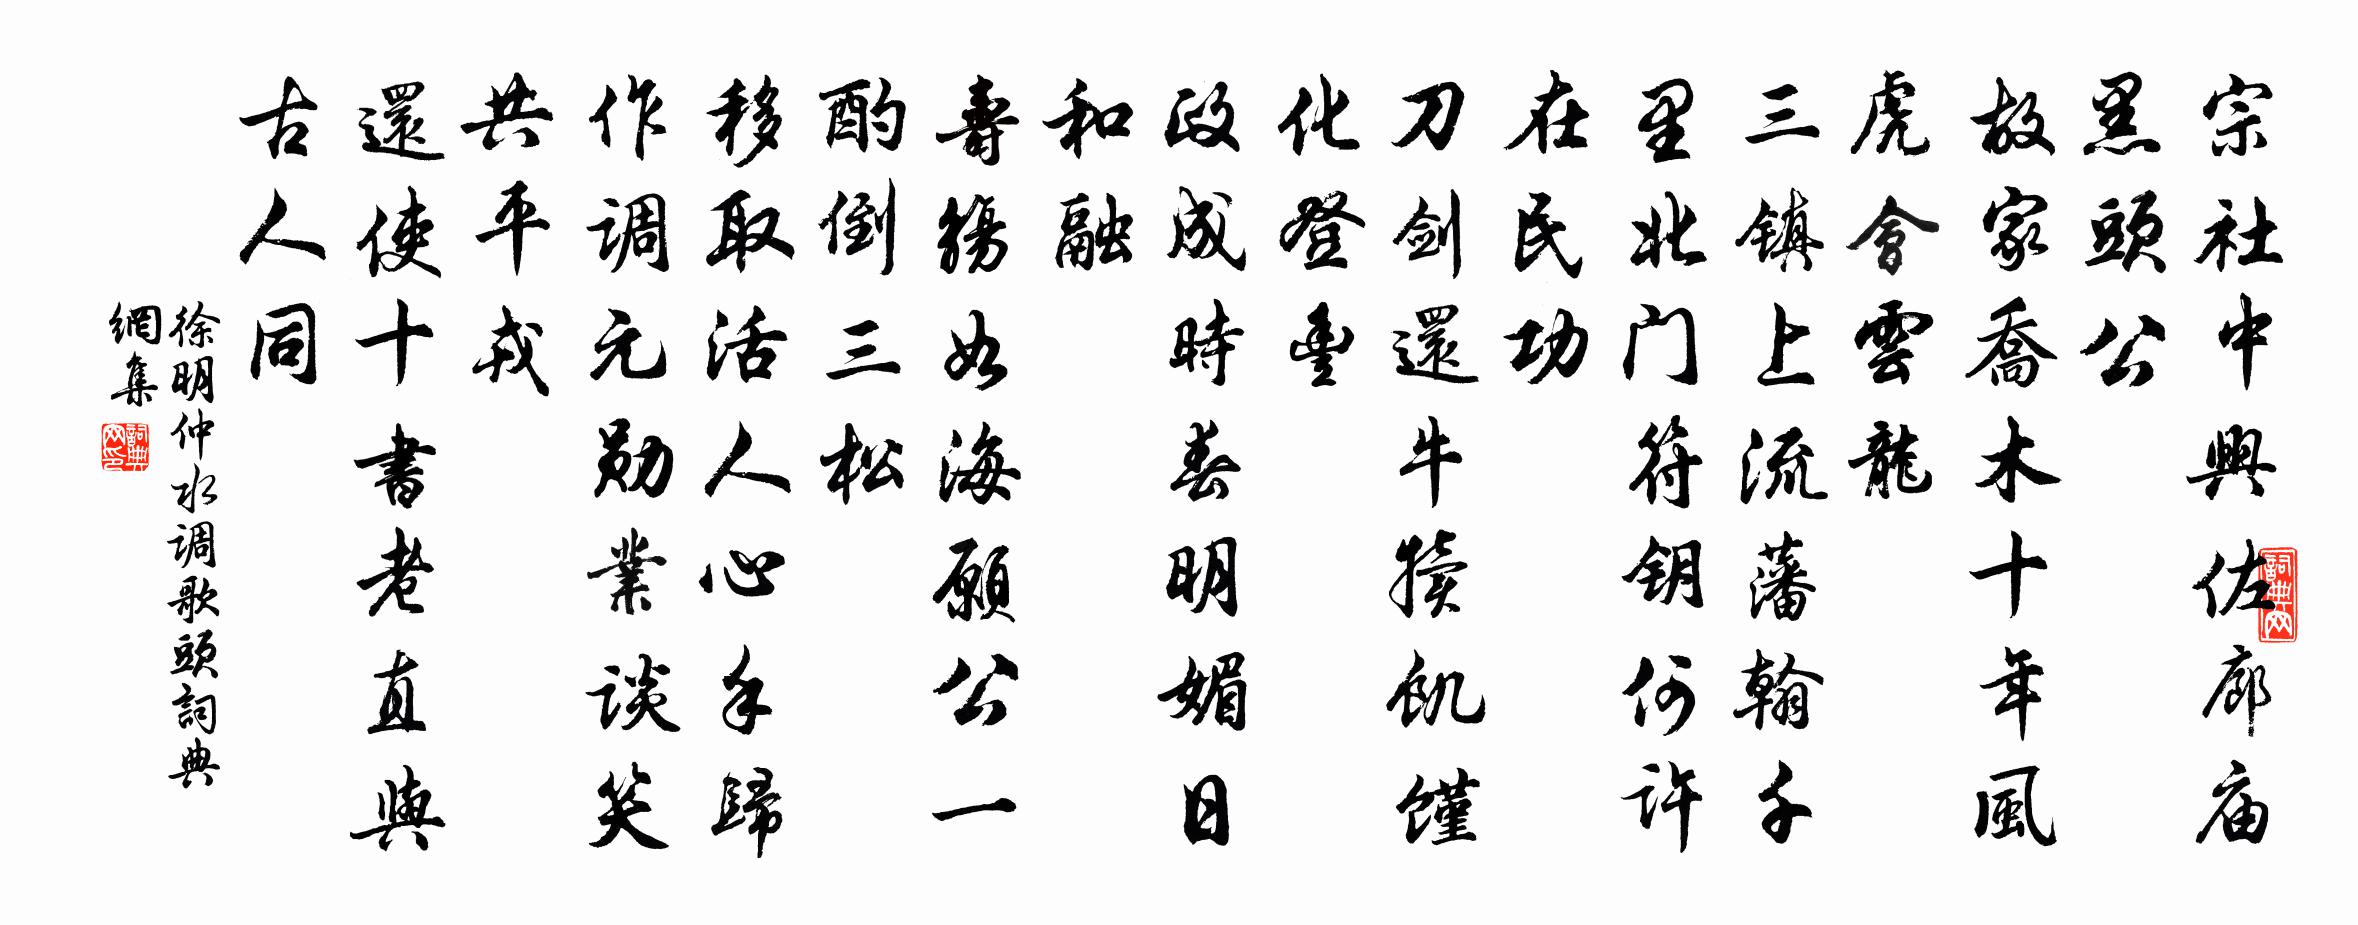 宗社中興佐廊庙
黑頭公
故家喬木十年風
虎會雲龍
三镇上流藩翰千
里北门符钥何许
在民功
刀剑還牛犊饥馑
化登豊
政成時春明媚日
和融
壽觞如海願公一
酌倒三松
移取活人心手歸
作调元勋業谈笑
共平戎
還使十書老直與
古人同
徐明仲水调歌頭詞典
網集
詞典网
詞典网印